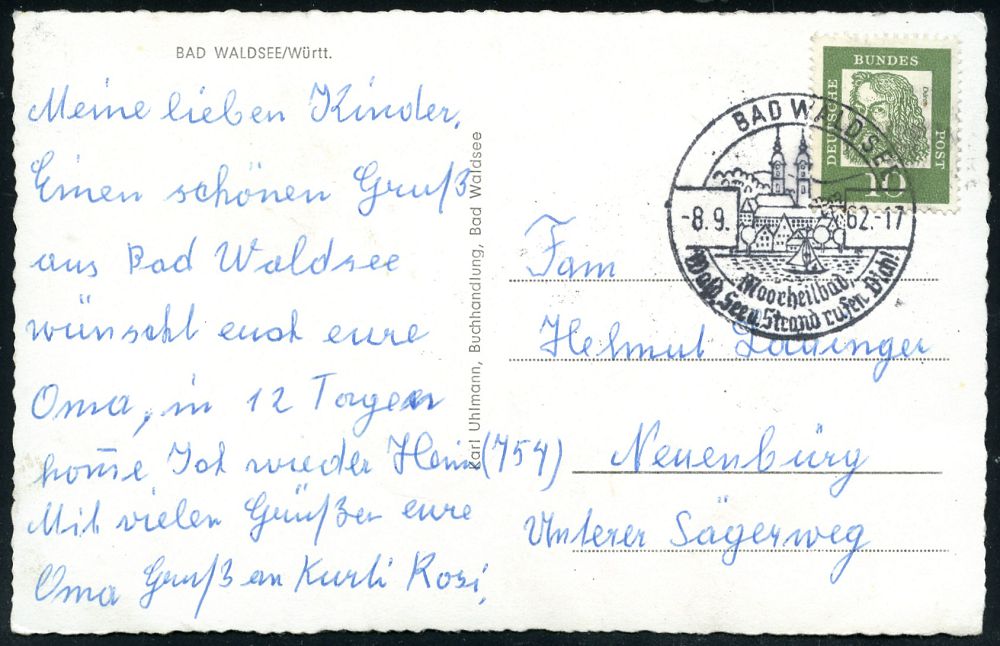 BAD WALDSEE/Württ.
Meine lieben Kinder,
Einen schönen Gruß
aus Bad Waldsee
wünscht euch eure
Oma, in 12 Tagen
kom̄e Ich wieder Heim
Mit vielen Grüßen eure
Oma Gruß an Kurti Rosi,
Karl Uhlmann, Buchhandlung, Bad Waldsee
DEUTSCHE BUNDES POST
10
BAD WALDSEE
-8.9. 62.-17
Moorheilbad,
Wald, See u. Strand rufen Dich!
Fam
Helmut
(754) Neuenbürg
Unterer Sägerweg